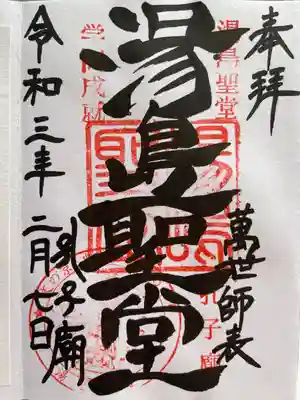 奉拝
湯島聖堂
萬世師表
孔子廟
湯島聖堂
学問成就
孔子廟
令和三年二月七日